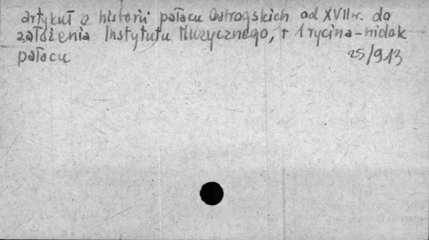 artykuł o historii pałacu Ostrogskich od XVII w. do
założenia Instytutu Muzycznego, + 1 rycina - widok
pałacu 25/913